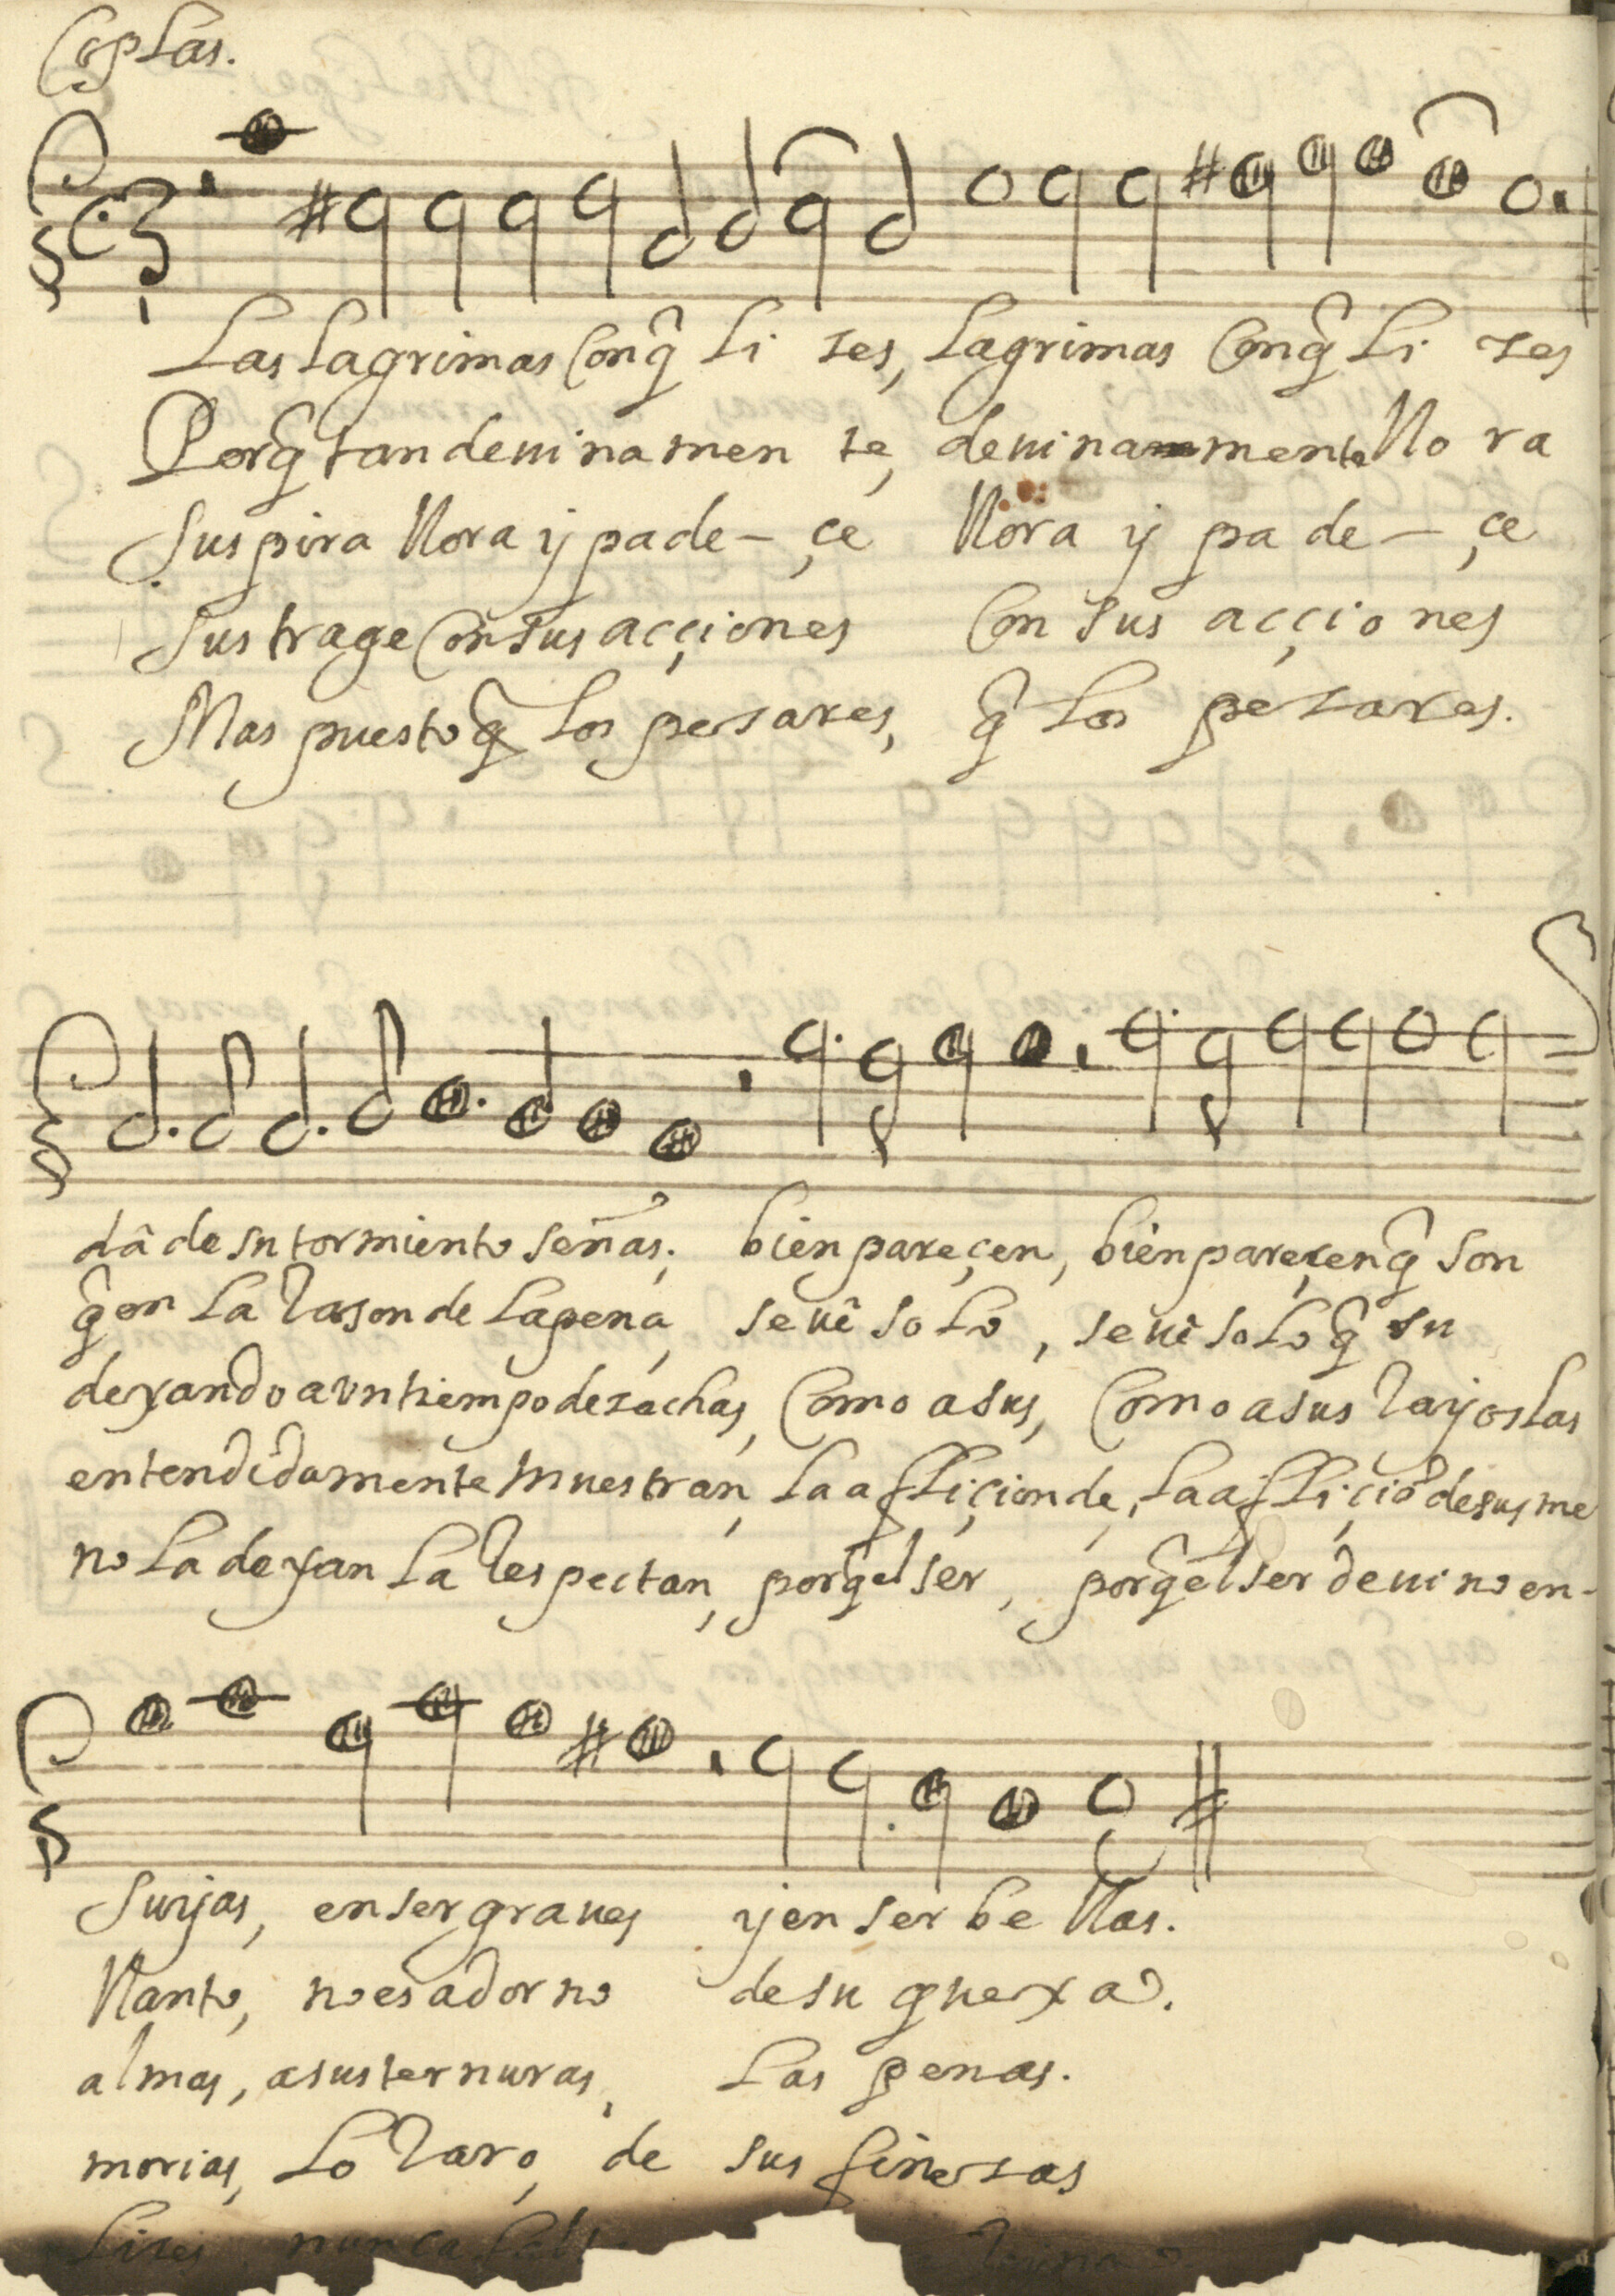 Coplas.
Las lagrimas Con q̃ Li ses, lagrimas Con q̃ Li ses
Porq̃ tan deuinamen te, deuinamente llo ra
Suspira llora y pade - çe llora y pa de - çe
Sus trage Con sus acçiones Con sus acçio nes
Mas puesto q̃ los pesares, q̃ los pesares.
dâ de su tormiento señas, bien pareçen, bien pareçen q̃ son
q̃ en la rason de la pena, se uê solo, se uê solo q̃ su
dexando a vn tiempo desechas, Como a sus, Como a sus rayos las
entendidamente muestran, la afliçion de, la afliçiõ de sus me
no la dexan la respectan, porq̃ el ser, porq̃ el ser deuino en-
suyas, en ser graues y en ser be llas.
llanto, no es adorno de su quexa.
almas, a sus ternuras, las penas.
morias, lo raro, de sus finesas
Lises, nunca